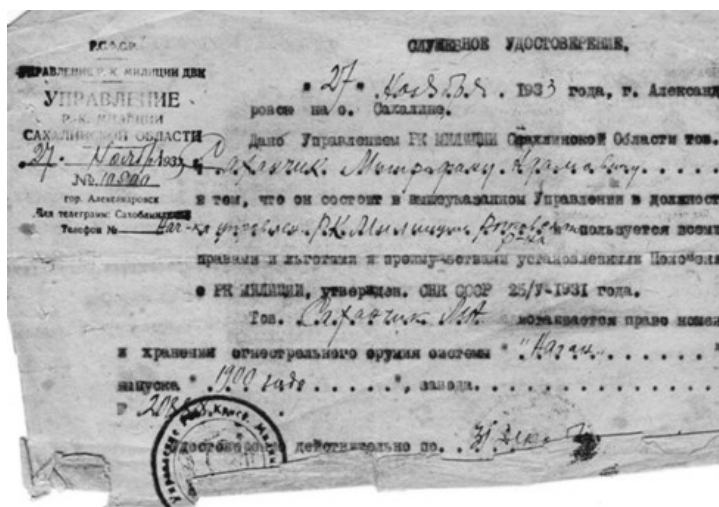 Р.С.Ф.С.Р.
УПРАВЛЕНИЕ Р. К. МИЛИЦИИ ДВК
УПРАВЛЕНИЕ
Р.-К. МИЛИЦИИ
САХАЛИНСКОЙ ОБЛАСТИ
27 Ноября 1933
№
гор. Александровск
Для телеграмм: Сахоблмилиция
Телефон №
СЛУЖЕБНОЕ УДОСТОВЕРЕНИЕ.
"27" Ноября. 1933 года, г. Александ
ровск на о. Сахалине.
Дано Управлением РК МИЛИЦИИ Сахалинской Области тов.
Саханчик. Митрофану. Адамовичу. . . . .
в том, что он состоит в вышеуказанном Управлении в должност
Нач-ка управлен. РК. Милиции пользуется всеми
правами и льготами и преимуществами установленными Положени
о РК МИЛИЦИИ, утвержден. СНК СССР 25/V-1931 года.
Тов. Саханчик М.А. право ношен
и хранения огнестрельного оружия системы "Наган. . . . . . "
выпуска "1900 года . . . . . ", завода. . . . . . . .
Удостоверение действительно по. 31 Дек.
Управление Раб. Крест. Милиц